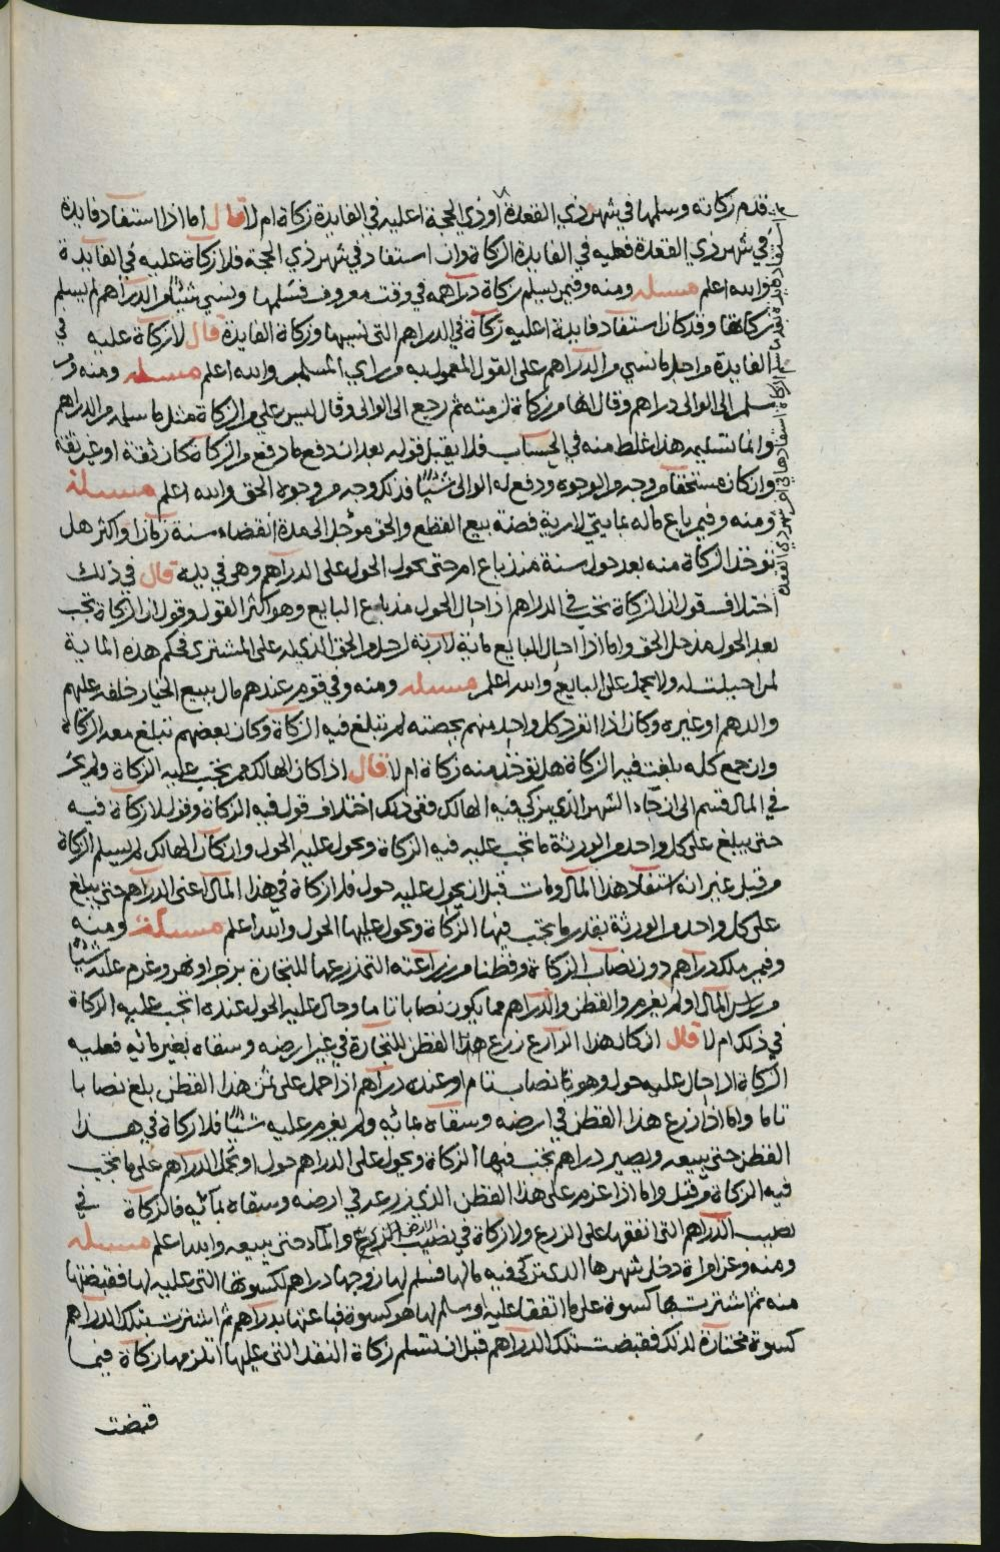 قدم زكاته وسلمها في شهر ذي القعدة او ذي الحجة اعليه في الفايدة زكاة ام لا قال اما اذا استفاد فايدة
في شهر ذي القعدة فعليه في الفايدة الزكاة وان استفاد في شهر ذي الحجة فلا زكاة عليه في الفايدة
والله اعلم مسئله ومنه وفيمن يسلم زكاة دراهمه في وقت معروف فسلمها ونسي شيئا من الدراهم لم يسلم
زكاتها وقد كان استفاد فايدة اعليه زكاة في الدراهم التي نسيها وزكاة الفايدة قال لا زكاة عليه في
الفايدة من اجل ما نسي من الدراهم على القول المعمول به من راي المسلمين والله اعلم مسئله ومنه ومن
سلم الى الوالي دراهم وقال انها من زكاة لزمته ثم رجع الى الوالي وقال ليس علي من الزكاة مثل ما سلمت من الدراهم
وانما تسليمه هذا غلط منه في الحساب فلا يقبل قوله بعد ان دفع ما دفع من الزكاة كان ثقة او غير ثقة
وان كان مستحقا من وجه من الوجوه ودفع له الوالي شيئا فذلك وجه من وجوه الحق والله اعلم مسئلة
ومنه وفيمن باع ماله بمايتي لارية فضة بيع القطع والحق مؤجل الى مدة انقضاء سنة زمانا واكثر هل
توخذ الزكاة منه بعد حول سنة منذ باع ام حتى يحول الحول على الدراهم وهي في يده قال في ذلك
اختلاف قول ان الزكاة تجب في الدراهم اذا حال الحول مذ باع البايع وهو اكثر القول وقول ان الزكاة تجب
بعد الحول مذ حل الحق واما اذا احال البايع مائة لارية لرجل من الحق الذي له على المشتري فحكم هذه الماية
لمن احيلت له ولا تحمل على البايع والله اعلم مسئله ومنه وفي قوم عندهم مال ببيع الخيار خلفه عليهم
والدهم او غيره وكان اذا انفرد كل واحد منهم بحصته لم تبلغ فيه الزكاة وكان بعضهم تبلغ معه الزكاة
وان جمع كله بلغت فيه الزكاة هل توخذ منه زكاة ام لا قال اذا كان الهالك ممن تجب عليه الزكاة ولم يجر
في المال قسم الى ان جاء الشهر الذي يزكي فيه الهالك ففي ذلك اختلاف قول فيه الزكاة وقول لا زكاة فيه
حتى يبلغ على كل واحد من الورثة ما تجب عليه فيه الزكاة ويحول عليه الحول وان كان الهالك لم يسلم الزكاة
من قبل غير انه استفاد هذا المال ومات قبل ان يحول عليه حول فلا زكاة في هذا المال اعني الدراهم حتى يبلغ
على كل واحد من الورثة بقدر ما تجب فيها الزكاة ويحول عليها الحول والله اعلم مسئلة ومنه
وفيمن ملك دراهم دون نصاب الزكاة وقطنا من زراعته التي زرعها للتجارة بزجر او نهر وغرم عليه شيئا
من راس المال او لم يغرم والقطن والدراهم مما يكون نصابا تاما وحال عليه الحول عنده اتجب عليه الزكاة
في ذلك ام لا قال ان كان هذا الزارع زرع هذا القطن للتجارة في غير ارضه وسقاه بغير مائه فعليه
الزكاة اذا حال عليه حول وهو نصاب تام او عنده دراهم اذا حمل على ثمن هذا القطن بلغ نصابا
تاما واما اذا زرع هذا القطن في ارضه وسقاه بمائه ولم يغرم عليه شيئا فلا زكاة في هذا
القطن حتى يبيعه ويصير دراهم تجب فيها الزكاة ويحول على الدراهم حول او تحمل الدراهم على ما تجب
فيه الزكاة من قبل واما اذا غرم على هذا القطن الذي زرعه في ارضه وسقاه بمائه فالزكاة في
نصيب الدراهم التي انفقها على الزرع ولا زكاة في نصيب الارض والماء حتى يبيعه والله اعلم مسئله
ومنه وعن امراة دخل شهرها الذي تزكي فيه مالها فسلم لها زوجها دراهم لكسوتها التي عليه لها فقبضتها
منه ثم اشترت بها كسوة على ما اتفقا عليه او سلم لها هو كسوة فباعتها بدراهم ثم اشترت بتلك الدراهم
كسوة مختارة لذلك فقبضت تلك الدراهم قبل ان تسلم زكاة النقد التي عليها اتلزمها زكاة فيما
قبضت